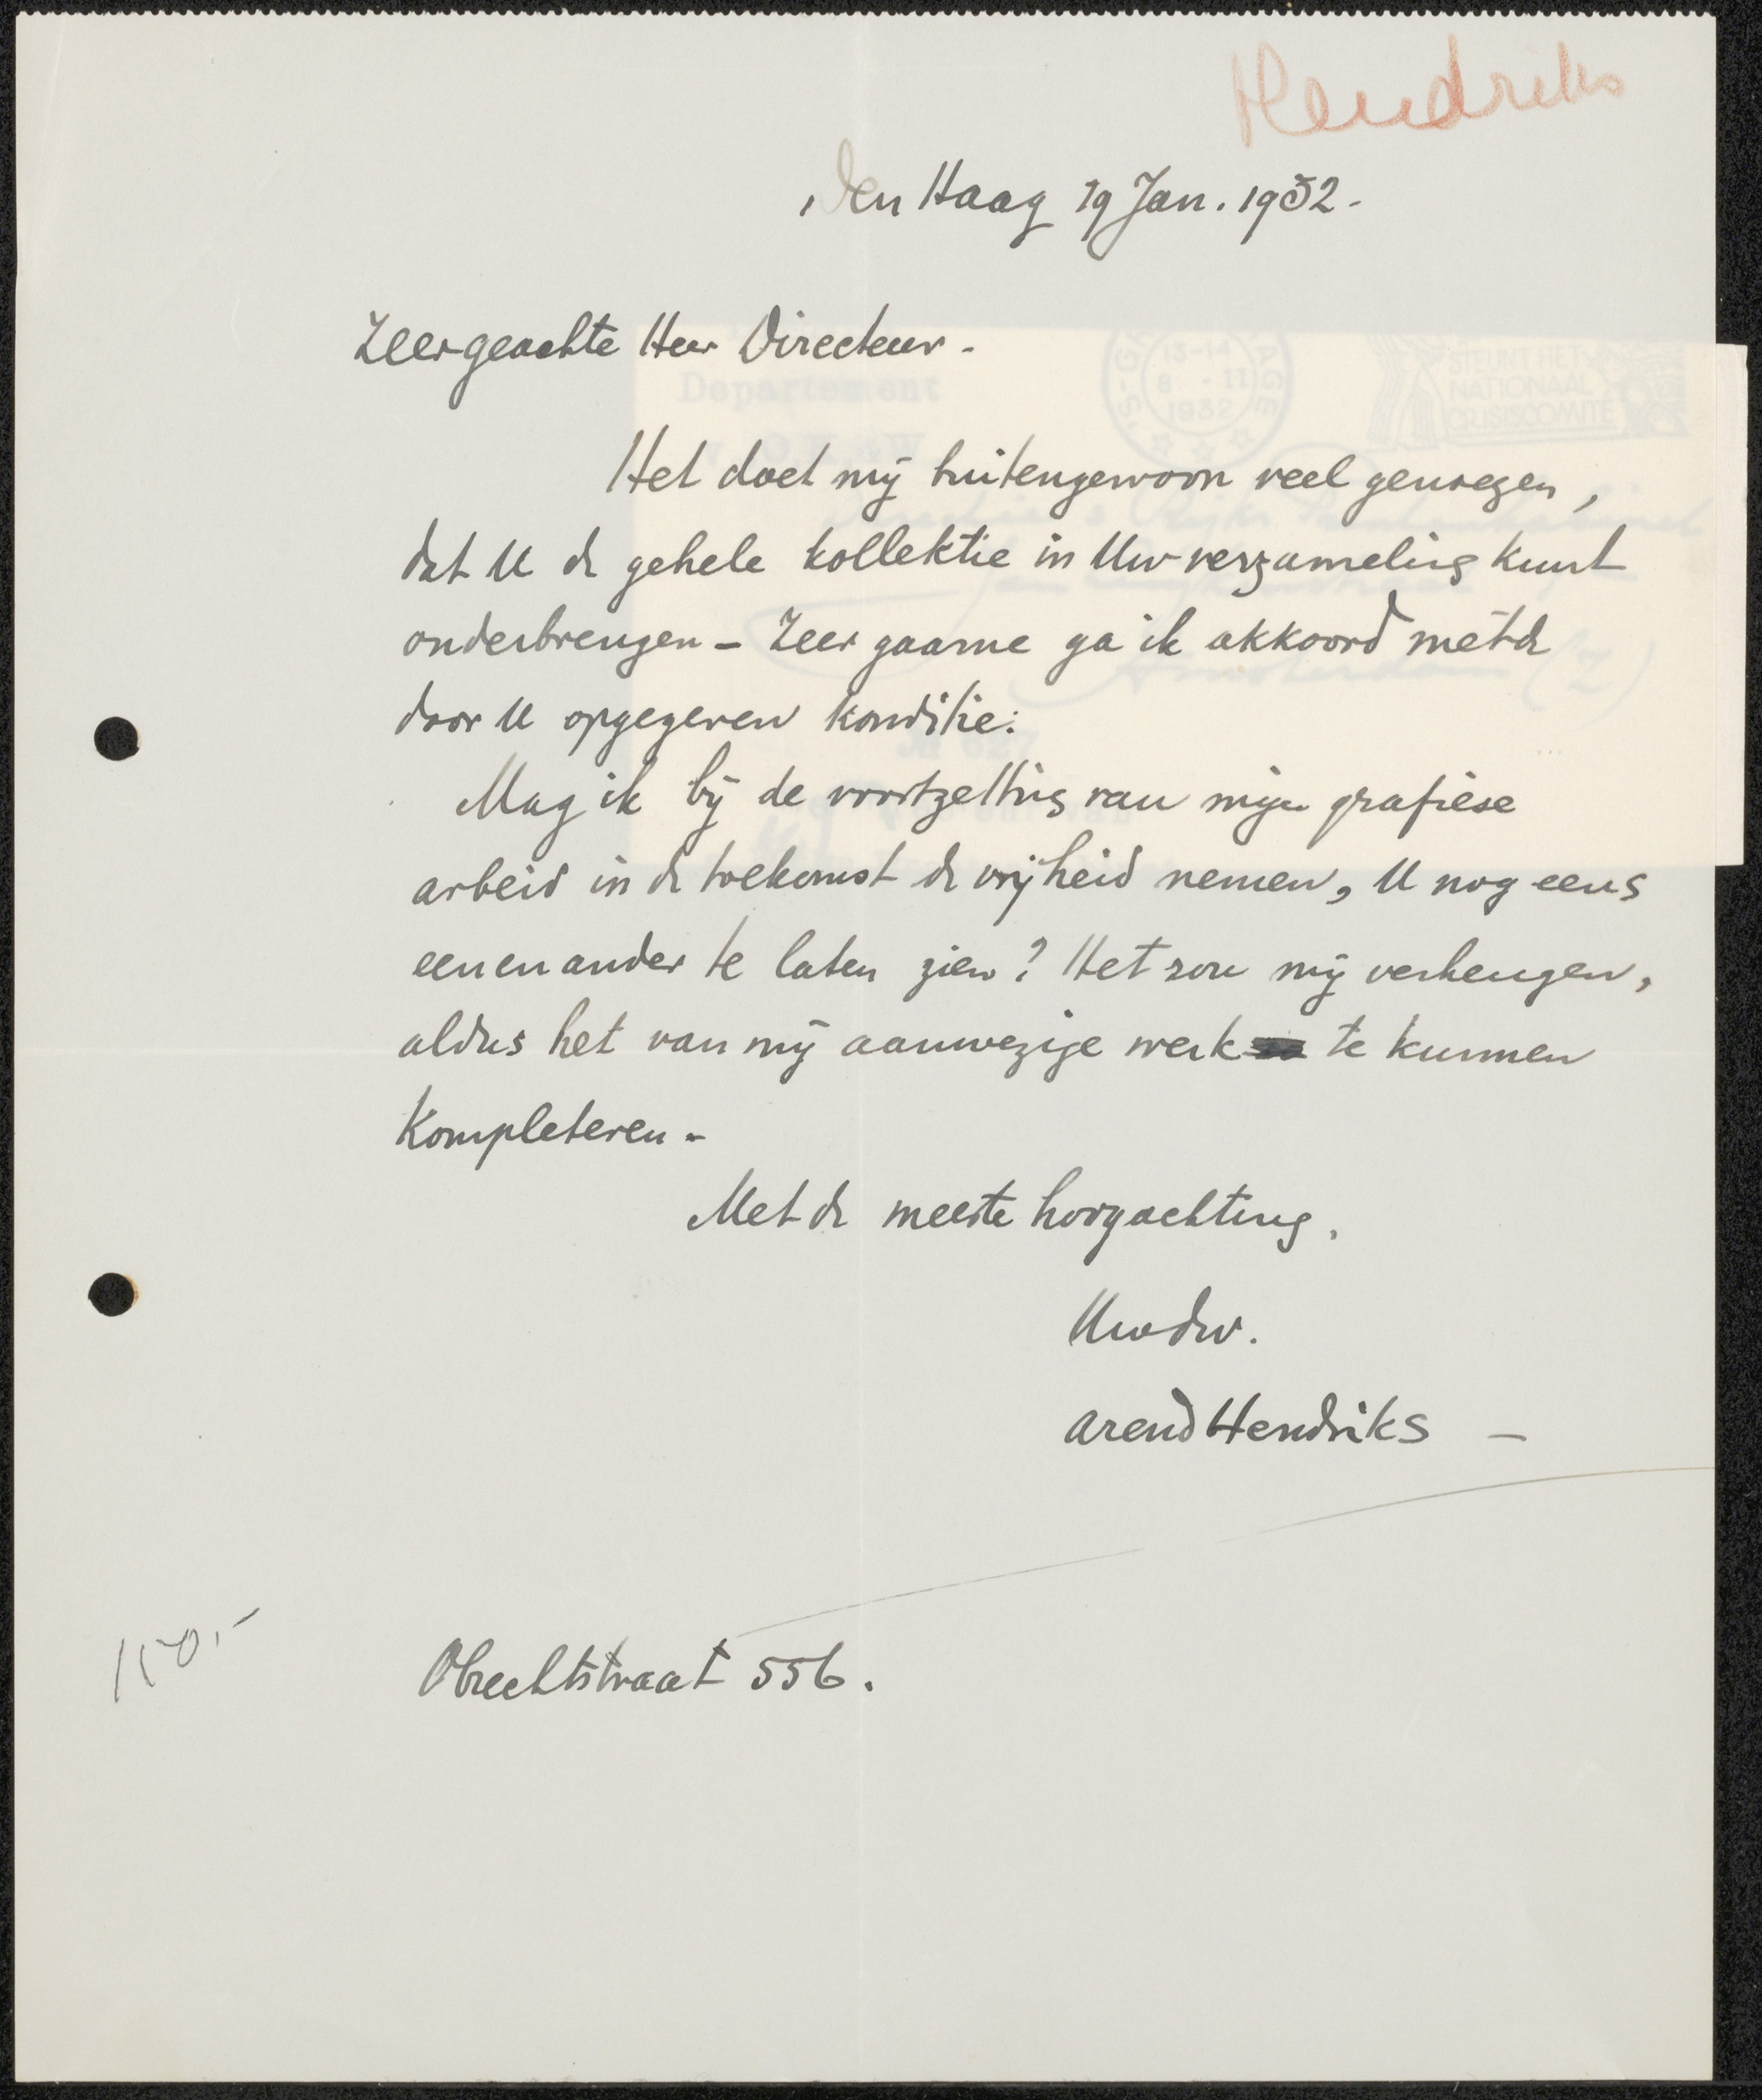 Hendriks
Den Haag 19 Jan. 1932.
Zeergeachte Heer Directeur.
Het doet mij buitengewoon veel genoegen,
dat U de gehele kollektie in Uw verzameling kunt
onderbrengen – Zeer gaarne ga ik akkoord met de
door U opgegeven konditie.
Mag ik bij de voortzetting van mijn grafiese
arbeid in de toekomst de vrijheid nemen, U nog eens
een en ander te laten zien? Het zou mij verheugen,
aldus het van mij aanwezige werk te kunnen
kompleteren.
Met de meeste hoogachting,
Uwdw.
Arend Hendriks –
Obrechtstraat 556.
150,-
Departement
13-14
8 - 11
1932
STEUNT HET
NATIONAAL
CRISISCOMITE
Amsterdam (Z)
№ 627